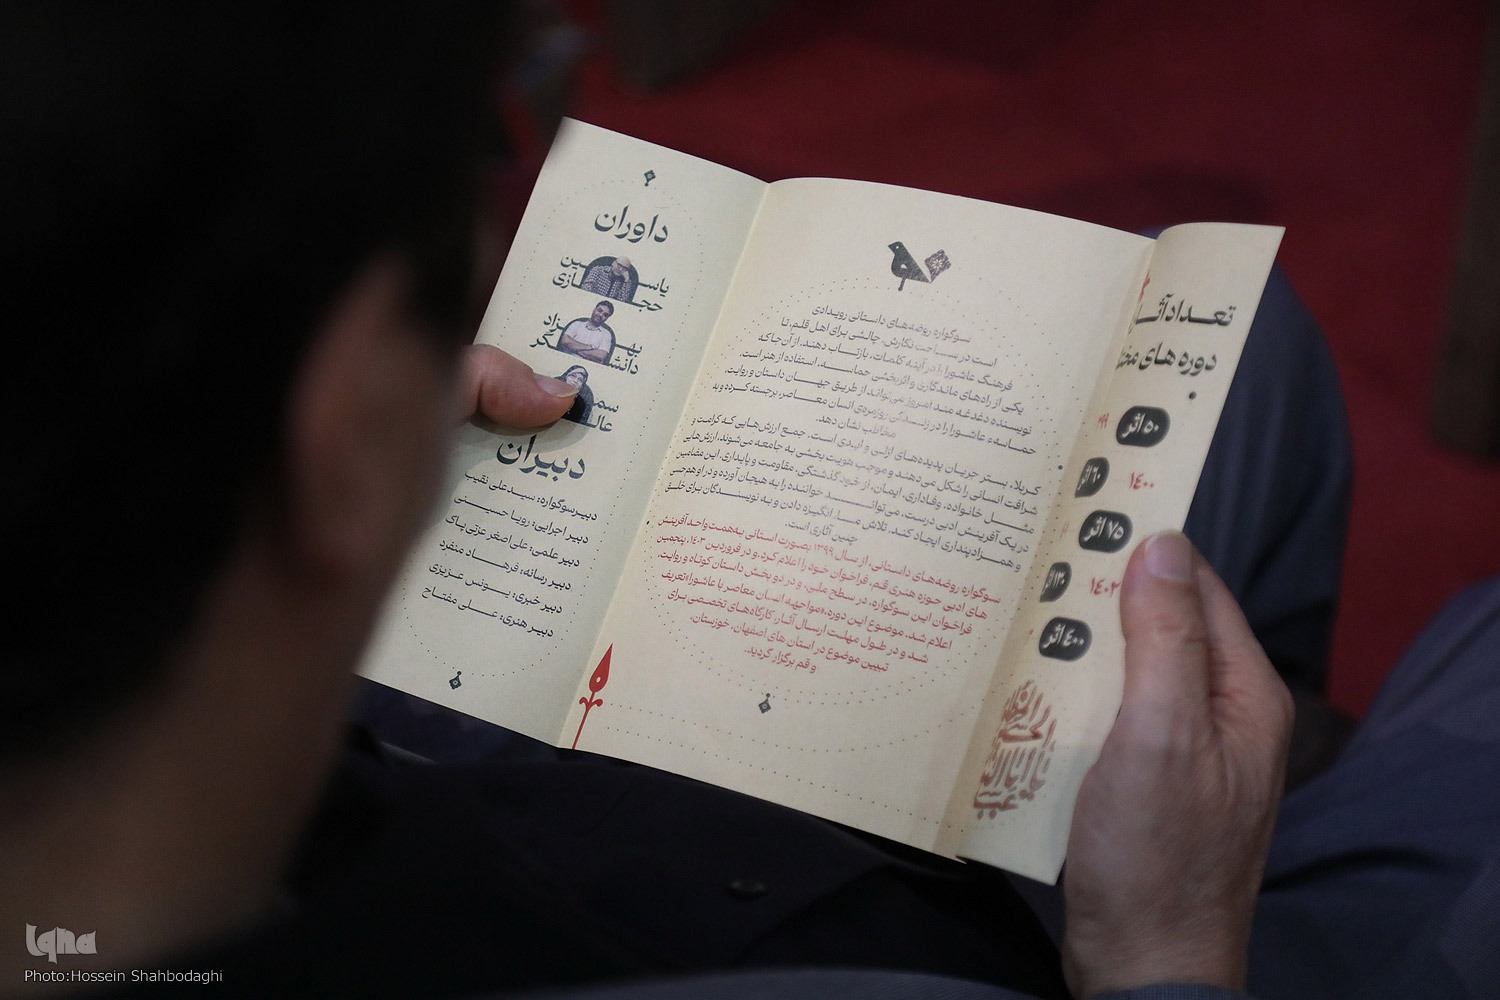 تعداد آثـ
دوره های مختـ
۵۰ اثر
۱۴۰۰
۶۰ اثر
۷۵ اثر
۱۴۰۲
۱۳۰
۴۰۰ اثر
سوگواره روضه‌های داستانی رویدادی
است در ســاحت نگارش، چالشی برای اهل قلم، تا
فرهنگ عاشورا را در آینه کلمات، بازتاب دهند. از آن‌جا که
یکی از راه‌های ماندگاری و اثربخشی حماسه، استفاده از هنر است،
نویسنده دغدغه مند امروز می‌تواند از طریق جهان داستان و روایت،
حماسهء عاشورا را در زندگی روزمره‌ی انسان معاصر، برجسته کرده و به
مخاطب نشان دهد.
کربلا، بستر جریان پدیده‌های ازلی و ابدی است. جمع ارزش‌هایی که کرامت و
شرافت انسانی را شکل می‌دهند و موجب هویت بخشی به جامعه می‌شوند. ارزش‌هایی
مثــل خانواده، وفاداری، ایمان، از خودگذشتگی، مقاومت و پایداری. این مضامین
در یک آفرینش ادبی درست، می‌توانــد خواننده را به هیجان آورده و در او هم‌حسی
و همزادپنداری ایجاد کند. تلاش مــا، انگیزه دادن و به نویسندگان برای خلق
چنین آثاری است.
سوگواره روضه‌های داستانی، از سال ۱۳۹۹ بصورت استانی به‌همت واحد آفرینش
های ادبی حوزه هنری قم، فراخوان خود را اعلام کرد. و در فروردین ۱۴۰۳، پنجمین
فراخوان این سوگواره، در سطح ملی، و در دو بخش داستان کوتاه و روایت،
اعلام شد. موضوع این دوره، «مواجهه انسان معاصر با عاشورا» تعریف
شد و در طول مهلت ارسال آثار، کارگاه‌های تخصصی برای
تبیین موضوع در استان های اصفهان، خوزستان،
و قم برگزار گردید.
داوران
یاســین
حجــازی
بهــزاد
دانشــگر
سمـ
عالـ
دبیران
دبیر سوگواره: سیدعلی نقیب
دبیر اجرایی: رویا حسینی
دبیر علمی: علی‌اصغر عزتی‌پاک
دبیر رسانه: فرهــاد منفرد
دبیر خبری: یونس عزیزی
دبیر هنری: علی مفتاح
Iqna
Photo:Hossein Shahbodaghi